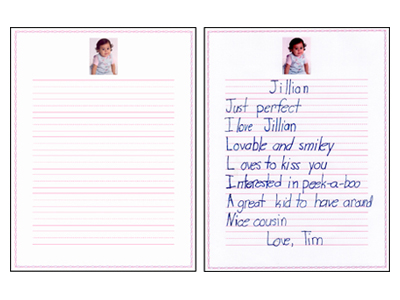 Jillian
Just perfect
I love Jillian
Lovable and smiley
Loves to kiss you
Interested in peek-a-boo
A great kid to have around
Nice cousin
Love, Tim